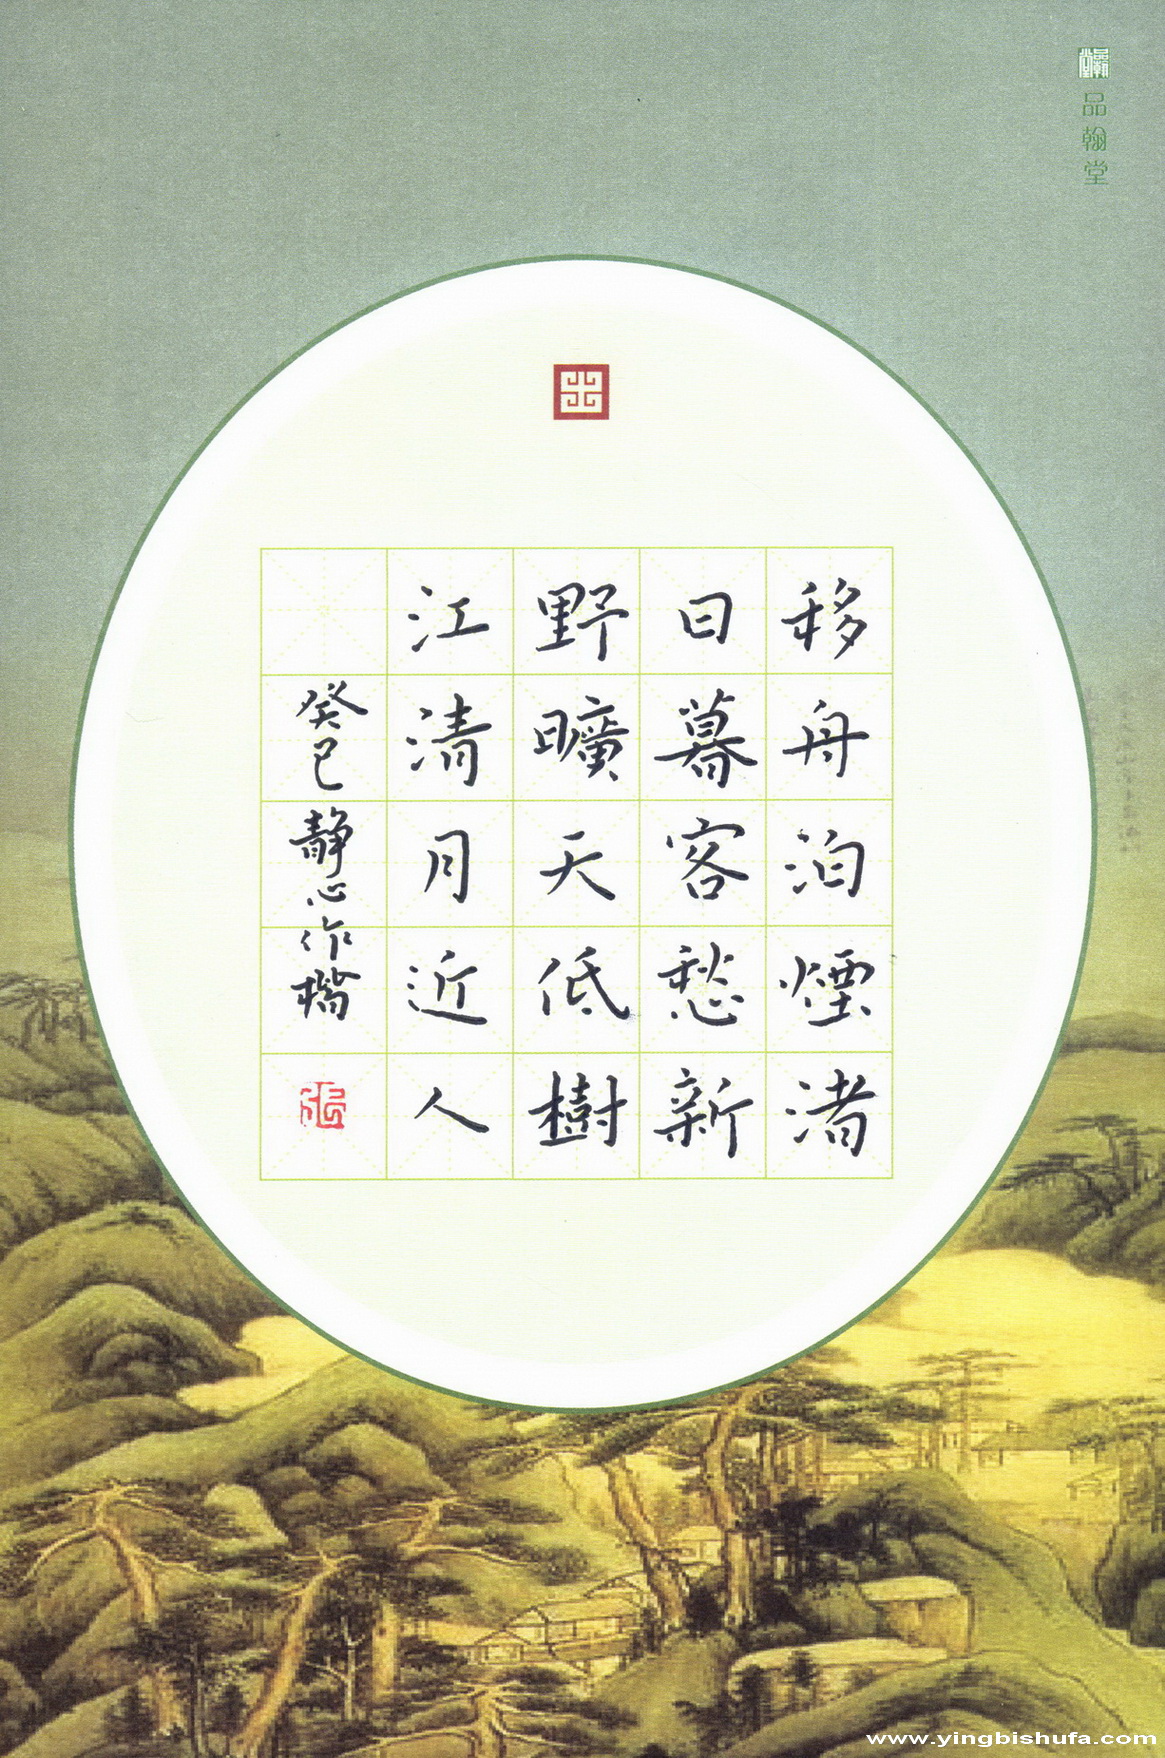 品翰堂
移舟泊煙渚
日暮客愁新
野曠天低樹
江清月近人
癸巳靜心作
www.yingbishufa.com